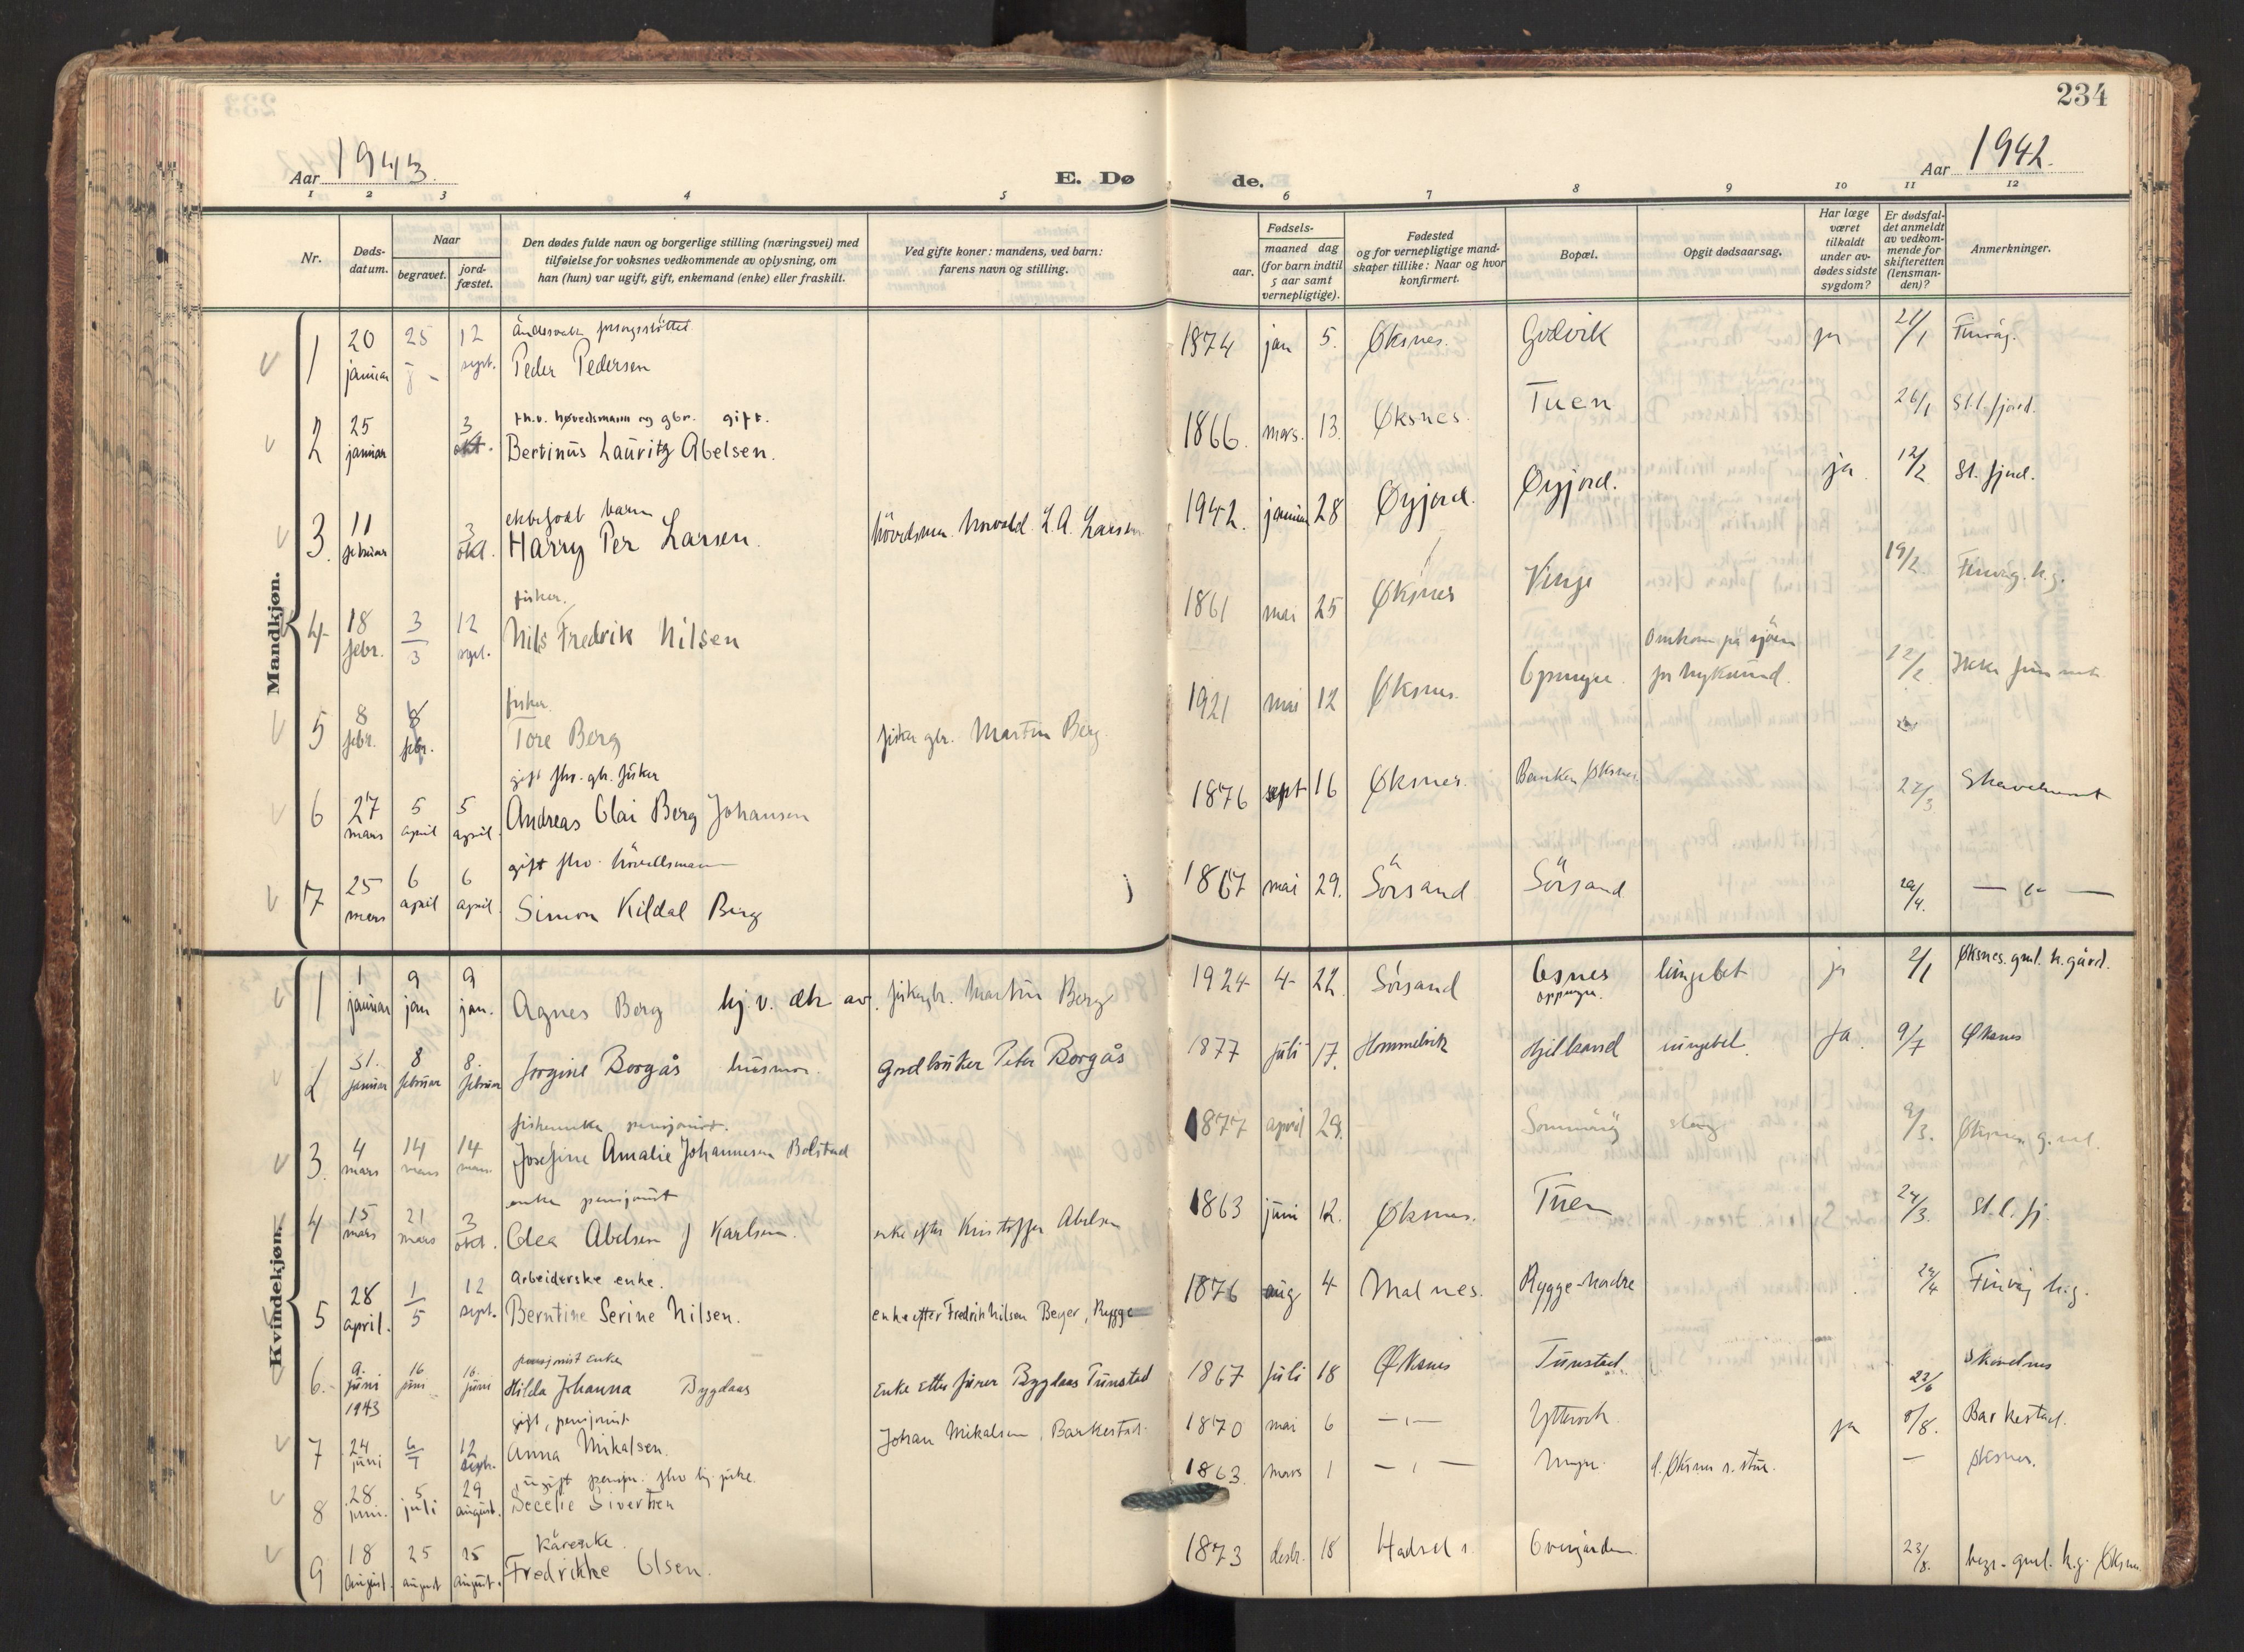 234
Aar 1943.
E. Døde.
Aar 1942.
1 2 3 4 5 6 7 8 9 10 11 12
Nr.
Døds-
datum.
Naar
begravet.
jord-
fæstet.
Den dødes fulde navn og borgerlige stilling (næringsvei) med
tilføielse for voksnes vedkommende av oplysning, om
han (hun) var ugift, gift, enkemand (enke) eller fraskilt.
Ved gifte koner: mandens, ved barn:
farens navn og stilling.
Fødsels-
aar.
maaned dag
(for barn indtil
5 aar samt
vernepligtige).
Fødested
og for vernepligtige mand-
skaper tillike: Naar og hvor
konfirmert.
Bopæl.
Opgit dødsaarsag.
Har læge
været
tilkaldt
under av-
dødes sidste
sygdom?
Er dødsfal-
det anmeldt
av vedkom-
mende for
skifteretten
(lensman-
den)?
Anmerkninger.
Mandkjøn.
1 20 januar 25 12 sept. Peder Pedersen 1874 jan 5. Øksnes. Godvik ja 21/1 Finvåg.
2 25 januar 3 okt. fh.v. høvedsmann og gbr. gift.
Bertinus Lauritz Abelsen. 1866. mars. 13. Øksnes. Tuen 26/1 St.l.fjord.
3. 11 februar 3 okt. ektefødt barn
Harry Per Larsen. hövedsman Norvald L.A. Larsen 1942. januar 28 Øyjord. Øyjord. ja 12/2 St. fjord.
4 18 febr. 3/3 12 sept. fisker.
Nils Fredrik Nilsen 1861 mai 25 Øksnes Vinje 19/2. Finvåg. k.g.
5 8 febr. 8 febr. fisker.
Tore Berg fisker gbr. Martin Berg. 1921 mai 12 Øksnes. Omkom på sjöen
på Nyksund. 12/2 Ikke funnet
6 27 mars 5 april 5 april. gift fhv. gb. fisker
Andreas Olai Berg Johansen 1876 sept 16 Øksnes. Øksnes. 27/3 Skavehaugt
7 25 mars 6 april 6 april. gift fhv. hövedsmann
Simon Kildal Berg 1867 mai 29. Sörsand Sörsand 20/4. — " —
Kvindekjøn.
1 1 januar 9 jan 9 jan. Agnes Berg hj.v. dtr av. fisker gbr. Martin Berg 1924 4 22. Sörsand lungebet ja 2/1 Øksnes gml. k.gård.
2 31. januar 8 februar 8. februar Jorgine Borgås husmor. gardbruker Peter Borgås 1877 juli 17. Hommelvik lungebet. ja 9/7 Øksnes
3. 4 mars 14 mars 14 mars fiskerenke pensjonist.
Josefine Amalie Johannesen Bolstad 1877 april 29. slag 9/3. Øksnes g.ml.
4 15 mars 21 mars 3 okt. enke pensjonist
Olea Abelsen f Karlsen. enke efter Kristoffer Abelsen 1863 juni 12. Øksnes. Tuen 24/3. St.l.fj.
5 28 april. 1/5 12 sept. Arbeiderske enke.
Berntine Serine Nilsen. enke efter Fredrik Nilsen Beyer, Rygge 1876 aug 4 Malnes. Rygge-Nordre 24/4 Finvåg k.g.
6. 9. juni 1943 16 juni 16. juni pensjonist enke
Hilda Johanna Bygdaas Enke etter fører Bygdaas Tunstad 1867 juli 18 Øksnes Tunstad 22/6 Skorelnes
7 24 juni 12 sept. gift, pensjonist
Anna Mikalsen. Johan Mikalsen, Barkestad. 1870 mai 6 — " — ja 5/8. Barkestad.
8 28 juni. 5 juli 29 august. ugift
Secelie Sivertsen 1863. mars 1 — " — — Øksnes.
9 18 august. 25 august 25 august. kårenke.
Fredrikke Olsen. 1873 desbr. 18 Hadsel s. Overgården. 23/8. begr. gml. k.g. Øksnes